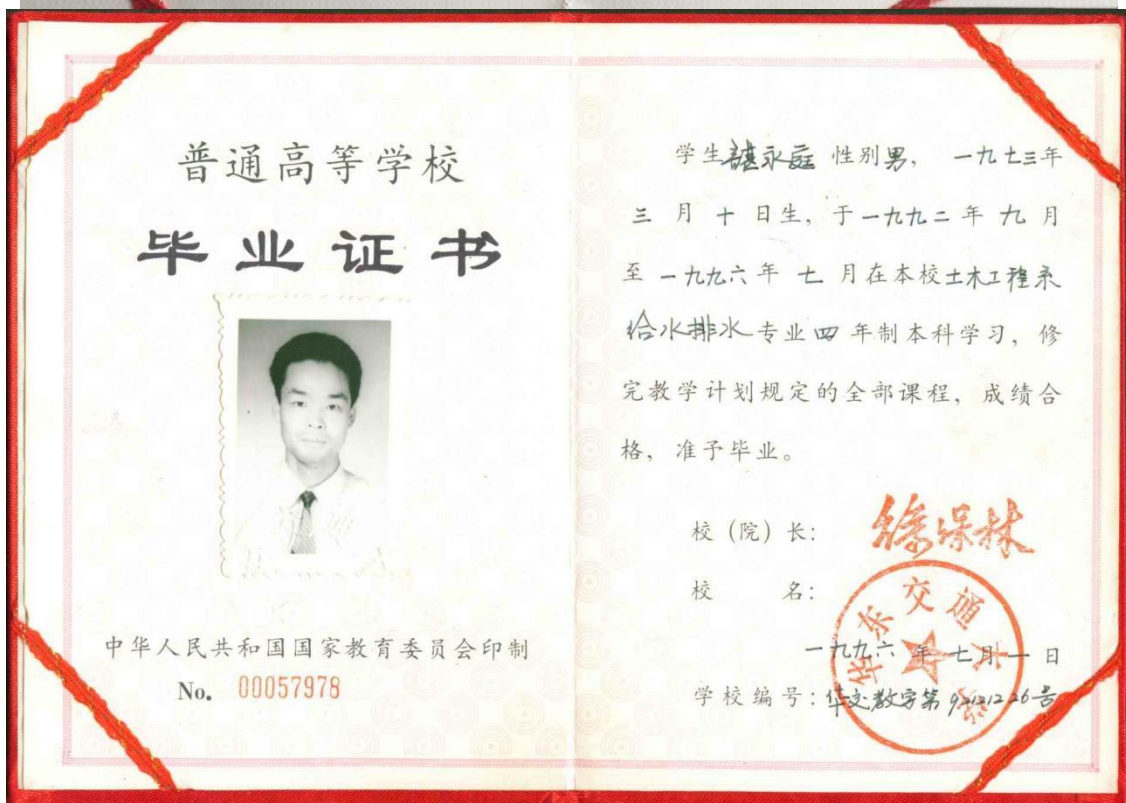 普通高等学校
毕业证书
中华人民共和国国家教育委员会印制
No. 00057978
学生谌永庭 性别男， 一九七三年
三月十日生，于一九九二年九月
至一九九六年七月在本校土木工程系
给水排水专业四年制本科学习，修
完教学计划规定的全部课程，成绩合
格，准予毕业。
校（院）长：徐保林
校名：
华东交通大学
一九九六年七月一日
学校编号：华交教字第92121226号